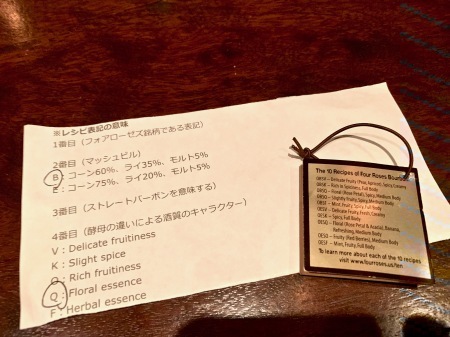 ※レシピ表記の意味
1番目（フォアローゼズ銘柄である表記）
2番目（マッシュビル）
B：コーン60%、ライ35%、モルト5%
E：コーン75%、ライ20%、モルト5%
3番目（ストレートバーボンを意味する）
4番目（酵母の違いによる酒質のキャラクター）
V：Delicate fruitiness
K：Slight spice
O：Rich fruitiness
Q：Floral essence
F：Herbal essence
The 10 Recipes of Four Roses Bourbon
OBSV – Delicate Fruity (Pear, Apricot), Spicy, Creamy
OBSK – Rich in Spiciness, Full Body
OBSQ – Floral (Rose Petal), Spicy, Medium Body
OBSO – Slightly Fruity, Spicy, Medium Body
OBSF – Mint, Fruity, Spicy, Full Body
OESV – Delicate Fruity, Fresh, Creamy
OESK – Spicy, Full Body
OESQ – Floral (Rose Petal & Acacia), Banana,
Refreshing, Medium Body
OESO – Fruity (Red Berries), Medium Body
OESF – Mint, Fruity, Full Body
To learn more about each of the 10 recipes
visit www.fourroses.us/ten